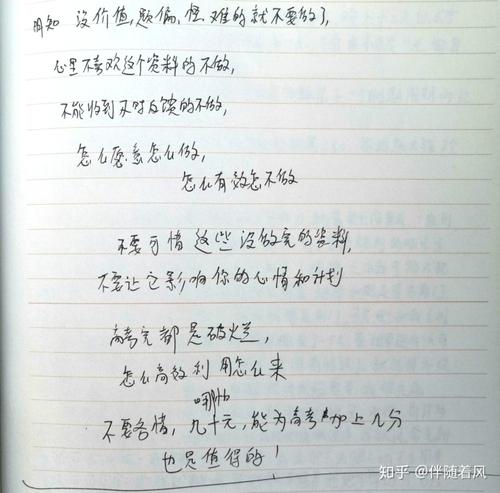 明知没价值,题偏、怪、难的就不要做了,
心里不喜欢这个资料的不做,
不能收到及时反馈的不做,
怎么愿意怎么做,
怎么有效怎不做
不要可惜这些没做完的资料,
不要让它影响你的心情和计划
高考完都是破烂,
怎么高效利用怎么来
哪怕
不要吝惜,几十元,能为高考加上几分
也是值得的!
知乎 @伴随着风